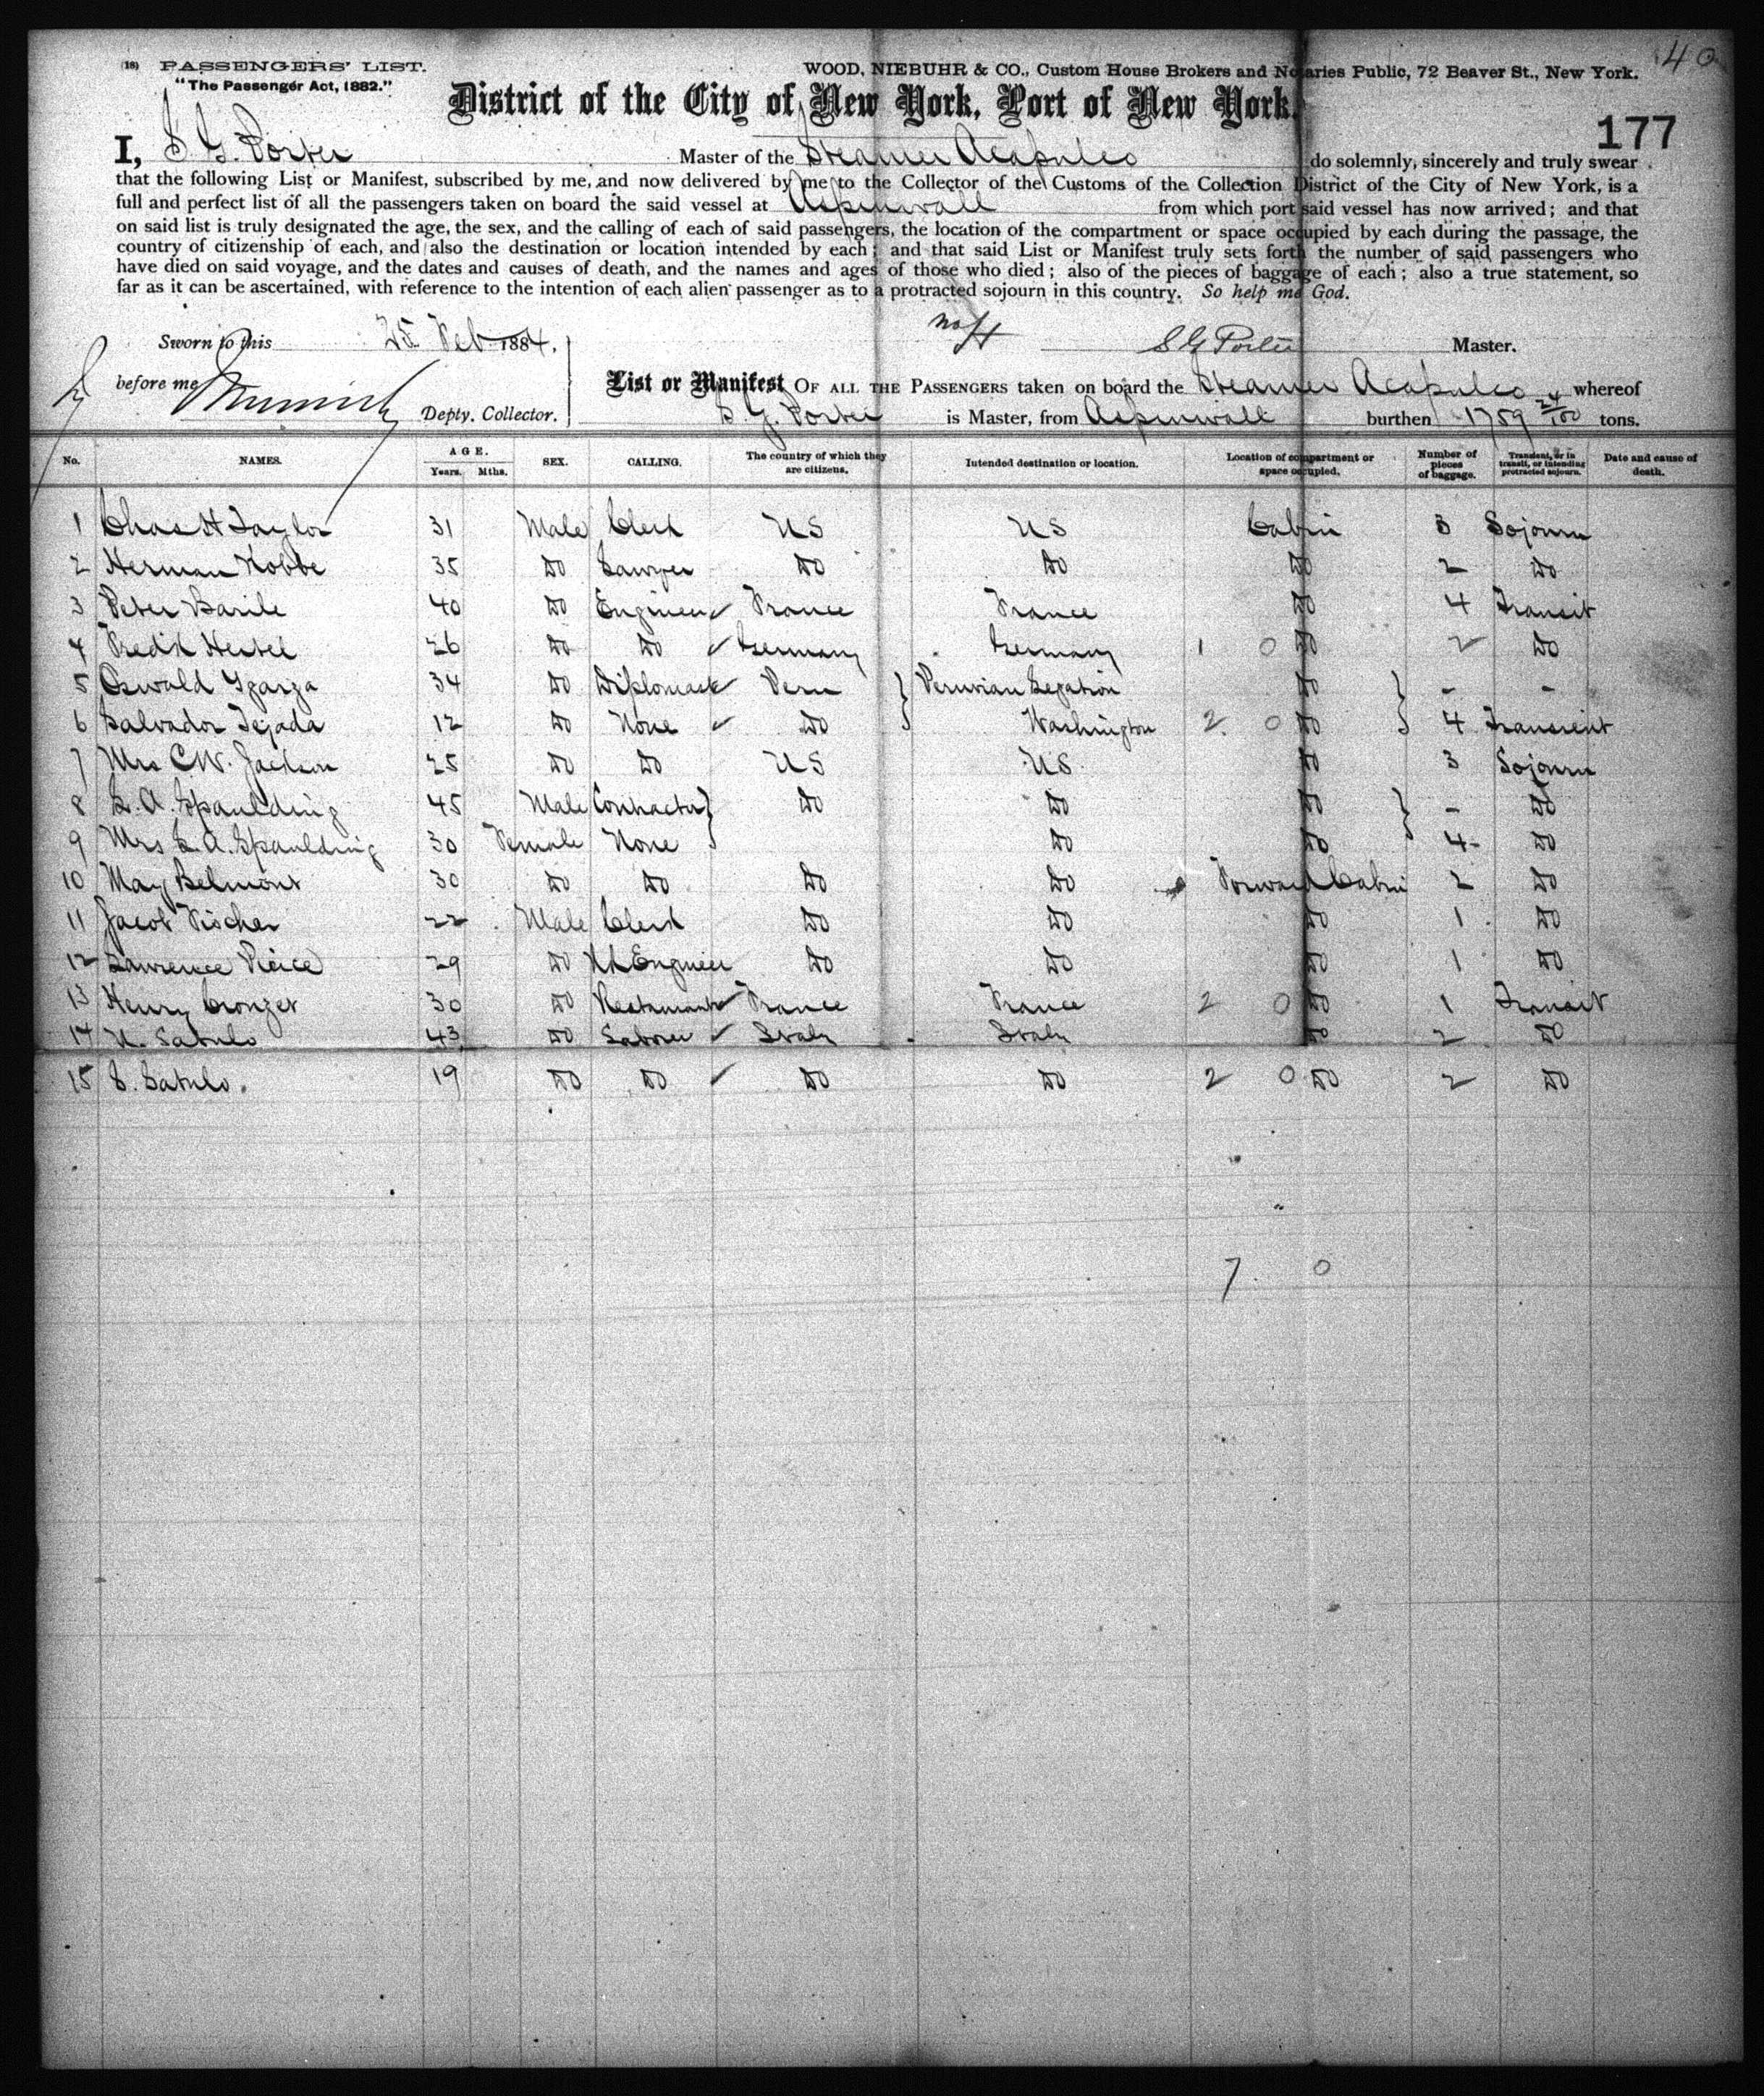 40
(18) PASSENGERS' LIST. WOOD, NIEBUHR & CO., Custom House Brokers and Notaries Public, 72 Beaver St., New York.
"The Passenger Act, 1882."
District of the City of New York, Port of New York.
177
I, S. G. Porter Master of the Steamer Acapulco do solemnly, sincerely and truly swear
that the following List or Manifest, subscribed by me, and now delivered by me to the Collector of the Customs of the Collection District of the City of New York, is a
full and perfect list of all the passengers taken on board the said vessel at Aspinwall from which port said vessel has now arrived; and that
on said list is truly designated the age, the sex, and the calling of each of said passengers, the location of the compartment or space occupied by each during the passage, the
country of citizenship of each, and also the destination or location intended by each; and that said List or Manifest truly sets forth the number of said passengers who
have died on said voyage, and the dates and causes of death, and the names and ages of those who died; also of the pieces of baggage of each; also a true statement, so
far as it can be ascertained, with reference to the intention of each alien passenger as to a protracted sojourn in this country. So help me God.
Sworn to this 25 Feb 1884. S G Porter Master.
before me Depty. Collector.
List or Manifest OF ALL THE PASSENGERS taken on board the Steamer Acapulco whereof
S. G. Porter is Master, from Aspinwall burthen 1759 24/100 tons.
No. NAMES. AGE. Years. Mths. SEX. CALLING. The country of which they are citizens. Intended destination or location. Location of compartment or space occupied. Number of pieces of baggage. Transient, or in transit, or intending protracted sojourn. Date and cause of death.
1 Chas H Taylor 31 Male Clerk US US Cabin 3 Sojourn
2 Herman Kobbe 35 Do Lawyer Do Do Do 2 Do
3 Peter Barile 40 Do Engineer France France Do 4 Transit
4 Fredk Hertel 26 Do Do Germany Germany 1 0 Do 2 Do
5 Oswald Ygarza 34 Do Diplomack Peru Peruvian Legation Do - -
6 Salvador Tejada 12 Do None Do Washington 2 0 Do 4 Transient
7 Mrs C W. Jackson 25 Do Do US US Do 3 Sojourn
8 L. A. Spaulding 45 Male Contractor Do Do Do - Do
9 Mrs L. A. Spaulding 30 Female None Do Do 4 - Do
10 May Belmont 30 Do Do Do Do Forward Cabin 2 Do
11 Jacob Fischer 22 Male Clerk Do Do Do 1 Do
12 Lawrence Pierce 29 Do Engineer Do Do Do 1 Do
13 Henry Cronzet 30 Do France France 2 0 Do 1 Transit
14 N. Satulo 43 Do Laborer Italy Italy Do 2 Do
15 S. Satulo. 19 Do Do Do Do 2 0 Do 2 Do
7 0